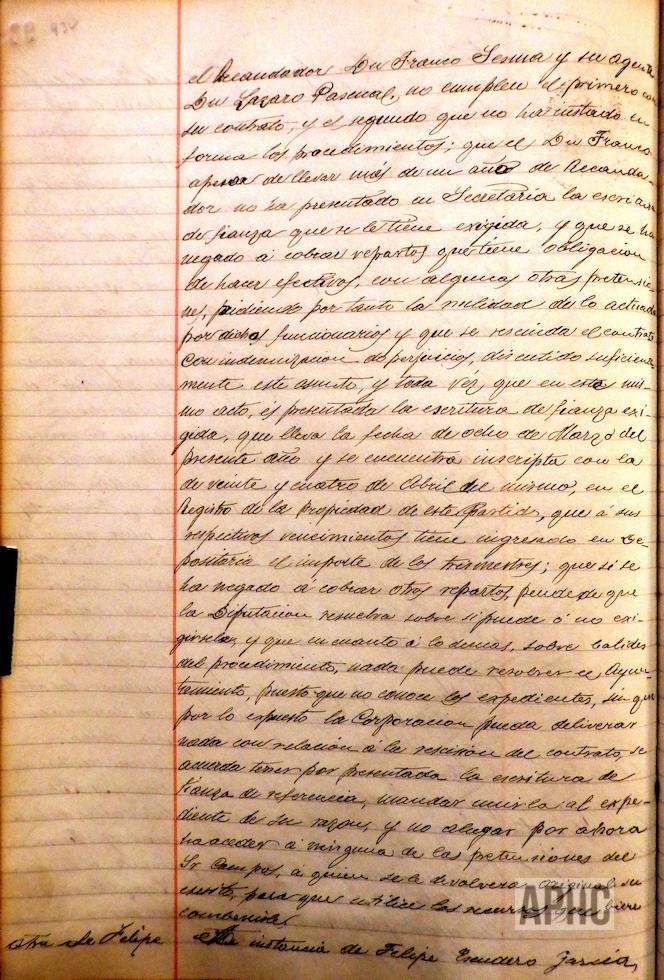 el Recaudador Dn Franco Sesma y su agente
Dn Lázaro Pascual, no cumplen el primero con
su contrato, y el segundo que no ha instado en
forma los procedimientos; que el Dn Franco
apesar de llevar más de un año de Recauda-
dor no ha presentado en Secretaría la escritura
de fianza que se le tiene exigida, y que se ha
negado á cobrar repartos que tiene obligacion
de hacer efectivos, con algunas otras pretensio-
nes, pidiendo por tanto la nulidad de lo actuado
por dichos funcionarios y que se rescinda el contrato
con indemnizacion de perjuicios, discutido suficiente-
mente este asunto, y toda véz que en este mis-
mo acto, és presentada la escritura de fianza exi-
gida, que lleva la fecha de ocho de Marzo del
presente año y se encuentra inscripta con la
de veinte y cuatro de Abril del mismo, en el
Registro de la Propiedad de este Partido, que á sus
respectivos vencimientos tiene ingresado en De-
positaria el importe de los trimestres; que si se
ha negado á cobrar otros repartos, pende de que
la Diputacion resuelva sobre si puede ó no exi-
girsele, y que en cuanto á lo demas, sobre balidez
del procedimiento, nada puede resolver el Ayun-
tamiento, puesto que no conoce los expedientes, sin que
por lo expuesto la Corporacion pueda deliverar
nada con relación á la rescision del contrato, se
acuerda tener por presentada la escritura de
fianza de referencia, mandar unirla al expe-
diente de su razon, y no a lugar por ahora
ha acceder á ninguna de las pretensiones del
Sr Campos, á quien se le devolverá original su
escrito, para que utilice los recursos que biere
combenirle.
otra de Felipe A la instancia de Felipe Escudero García,
APHC